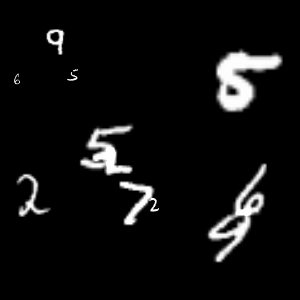 9
6 5 5
5 2
2 7 2 6
9